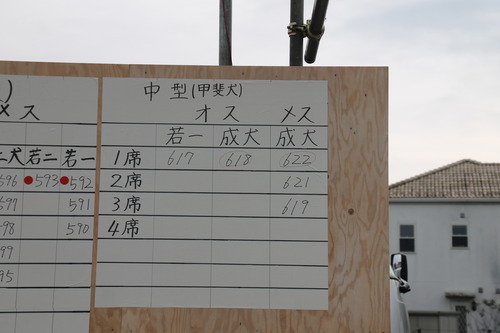 メス
二犬 若二 若一
596 ●593 ●592
597 591
598 590
599
595
中型(甲斐犬)
オス メス
若一 成犬 成犬
1席 617 618 622
2席 621
3席 619
4席